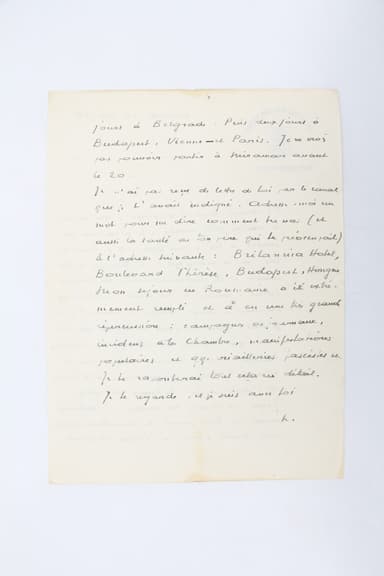 jours à Belgrade. Puis deux jours à
Budapest, Vienne et Paris. Je ne crois
pas pouvoir sortir à avant
le 20
Je n'ai pas reçu de lettre de toi par le canal
que je t'avais indiqué. Adresse-moi un
mot pour me dire comment tu vas (et
aussi la santé de ton père qui te préoccupait)
à l'adresse suivante : Britannia Hotel,
Boulevard Thérèse, Budapest, Hongrie
Mon séjour en Roumanie a été extrê-
mement rempli et a eu une très grande
répercussion : campagnes de journaux,
incidents à la Chambre, manifestations
populaires et qq. fascistes etc
Je te raconterai tout cela en détail.
Je te regarde et je suis avec toi